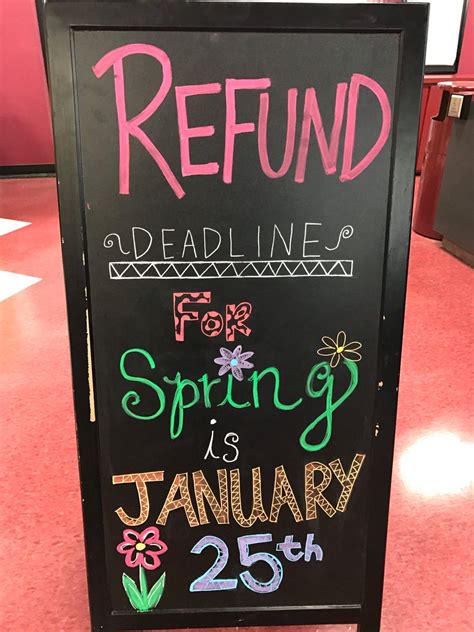 REFUND
DEADLINE
FOR
Spring
is
JANUARY
25th